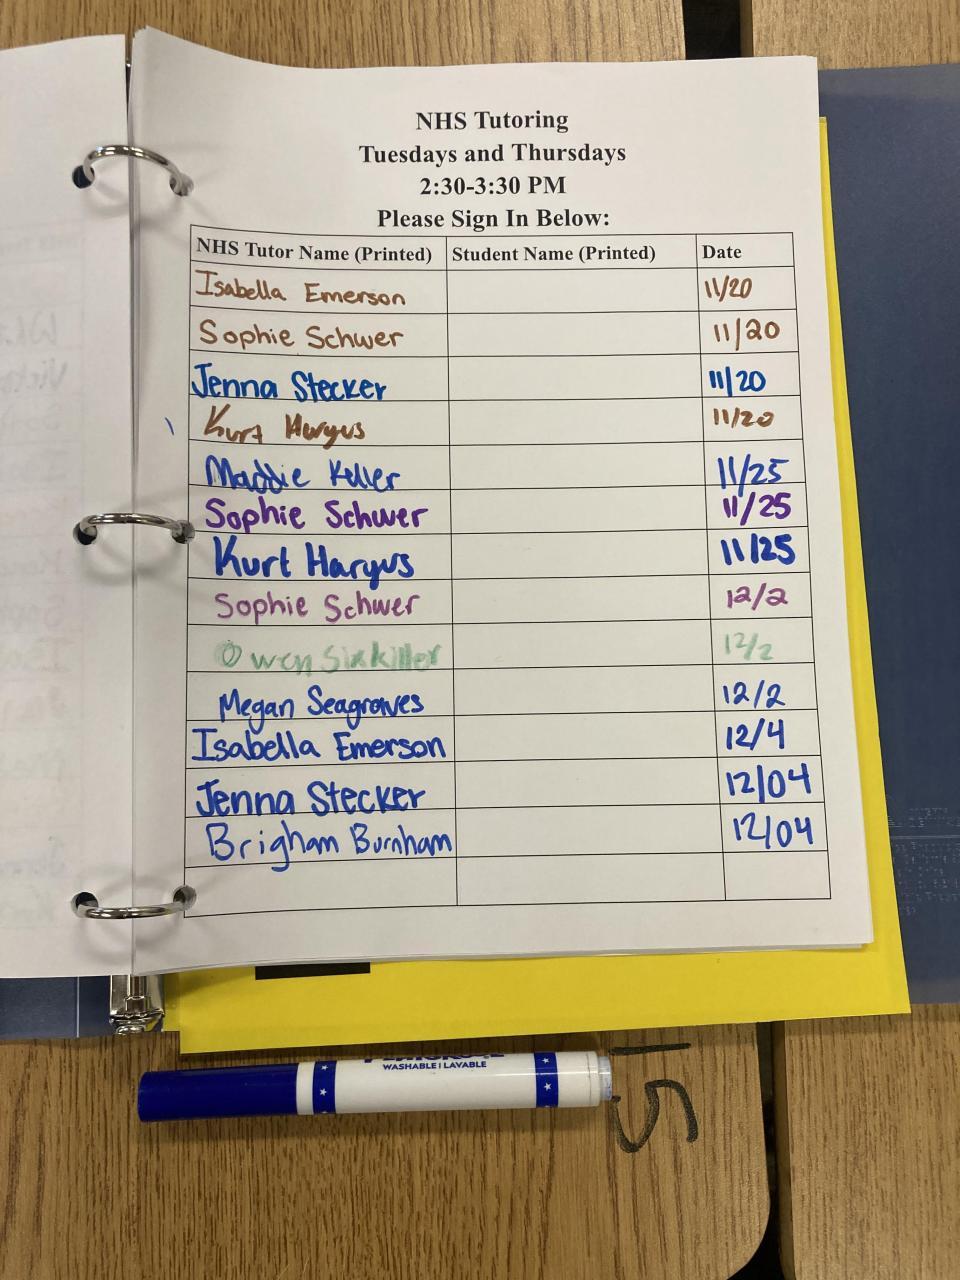 NHS Tutoring
Tuesdays and Thursdays
2:30-3:30 PM
Please Sign In Below:
NHS Tutor Name (Printed) Student Name (Printed) Date
Isabella Emerson 11/20
Sophie Schwer 11/20
Jenna Stecker 11/20
Kurt Hargus 11/20
Maddie Keller 11/25
Sophie Schwer 11/25
Kurt Hargus 11/25
Sophie Schwer 12/2
Owen Sixkiller 12/2
Megan Seagraves 12/2
Isabella Emerson 12/4
Jenna Stecker 12/04
Brigham Burnham 12/04
WASHABLE | LAVABLE
15